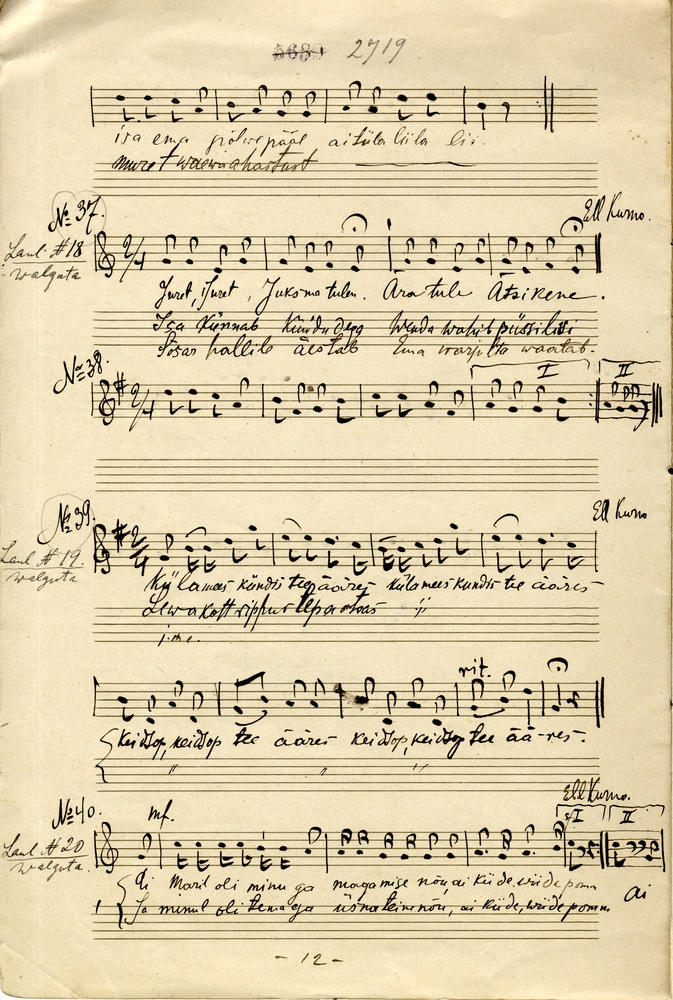 5681 2719
isa ema põlwe pääl aitüla liila lii.
muret waewa ahastust
№ 37. Ell Kurno.
Laul #18
walguta
Juret, Juret, Juksma tulen. Ära tule Ätsikene.
Isa künnab
Sõsar hallile äestab Ema warjulta waatab.
№ 38.
I II
№ 39. Ell Kurno
Laul #19.
walguta
Külamees kündis tee ääres külamees kündis tee ääres
Lewakott rippus lepa otsas
j.n.e.
rit.
Keidsop, keidsop tee ääres keidsop, keidsop tee ää-res.
№ 40. mf. Ell Kurno.
I II
Laul #20
walguta.
Ai Maril oli minu ga magamise nõu, ai kiide, wiide pomm ai
Ja minul oli temaga nõu, ai kiide, wiide pomm
- 12 -